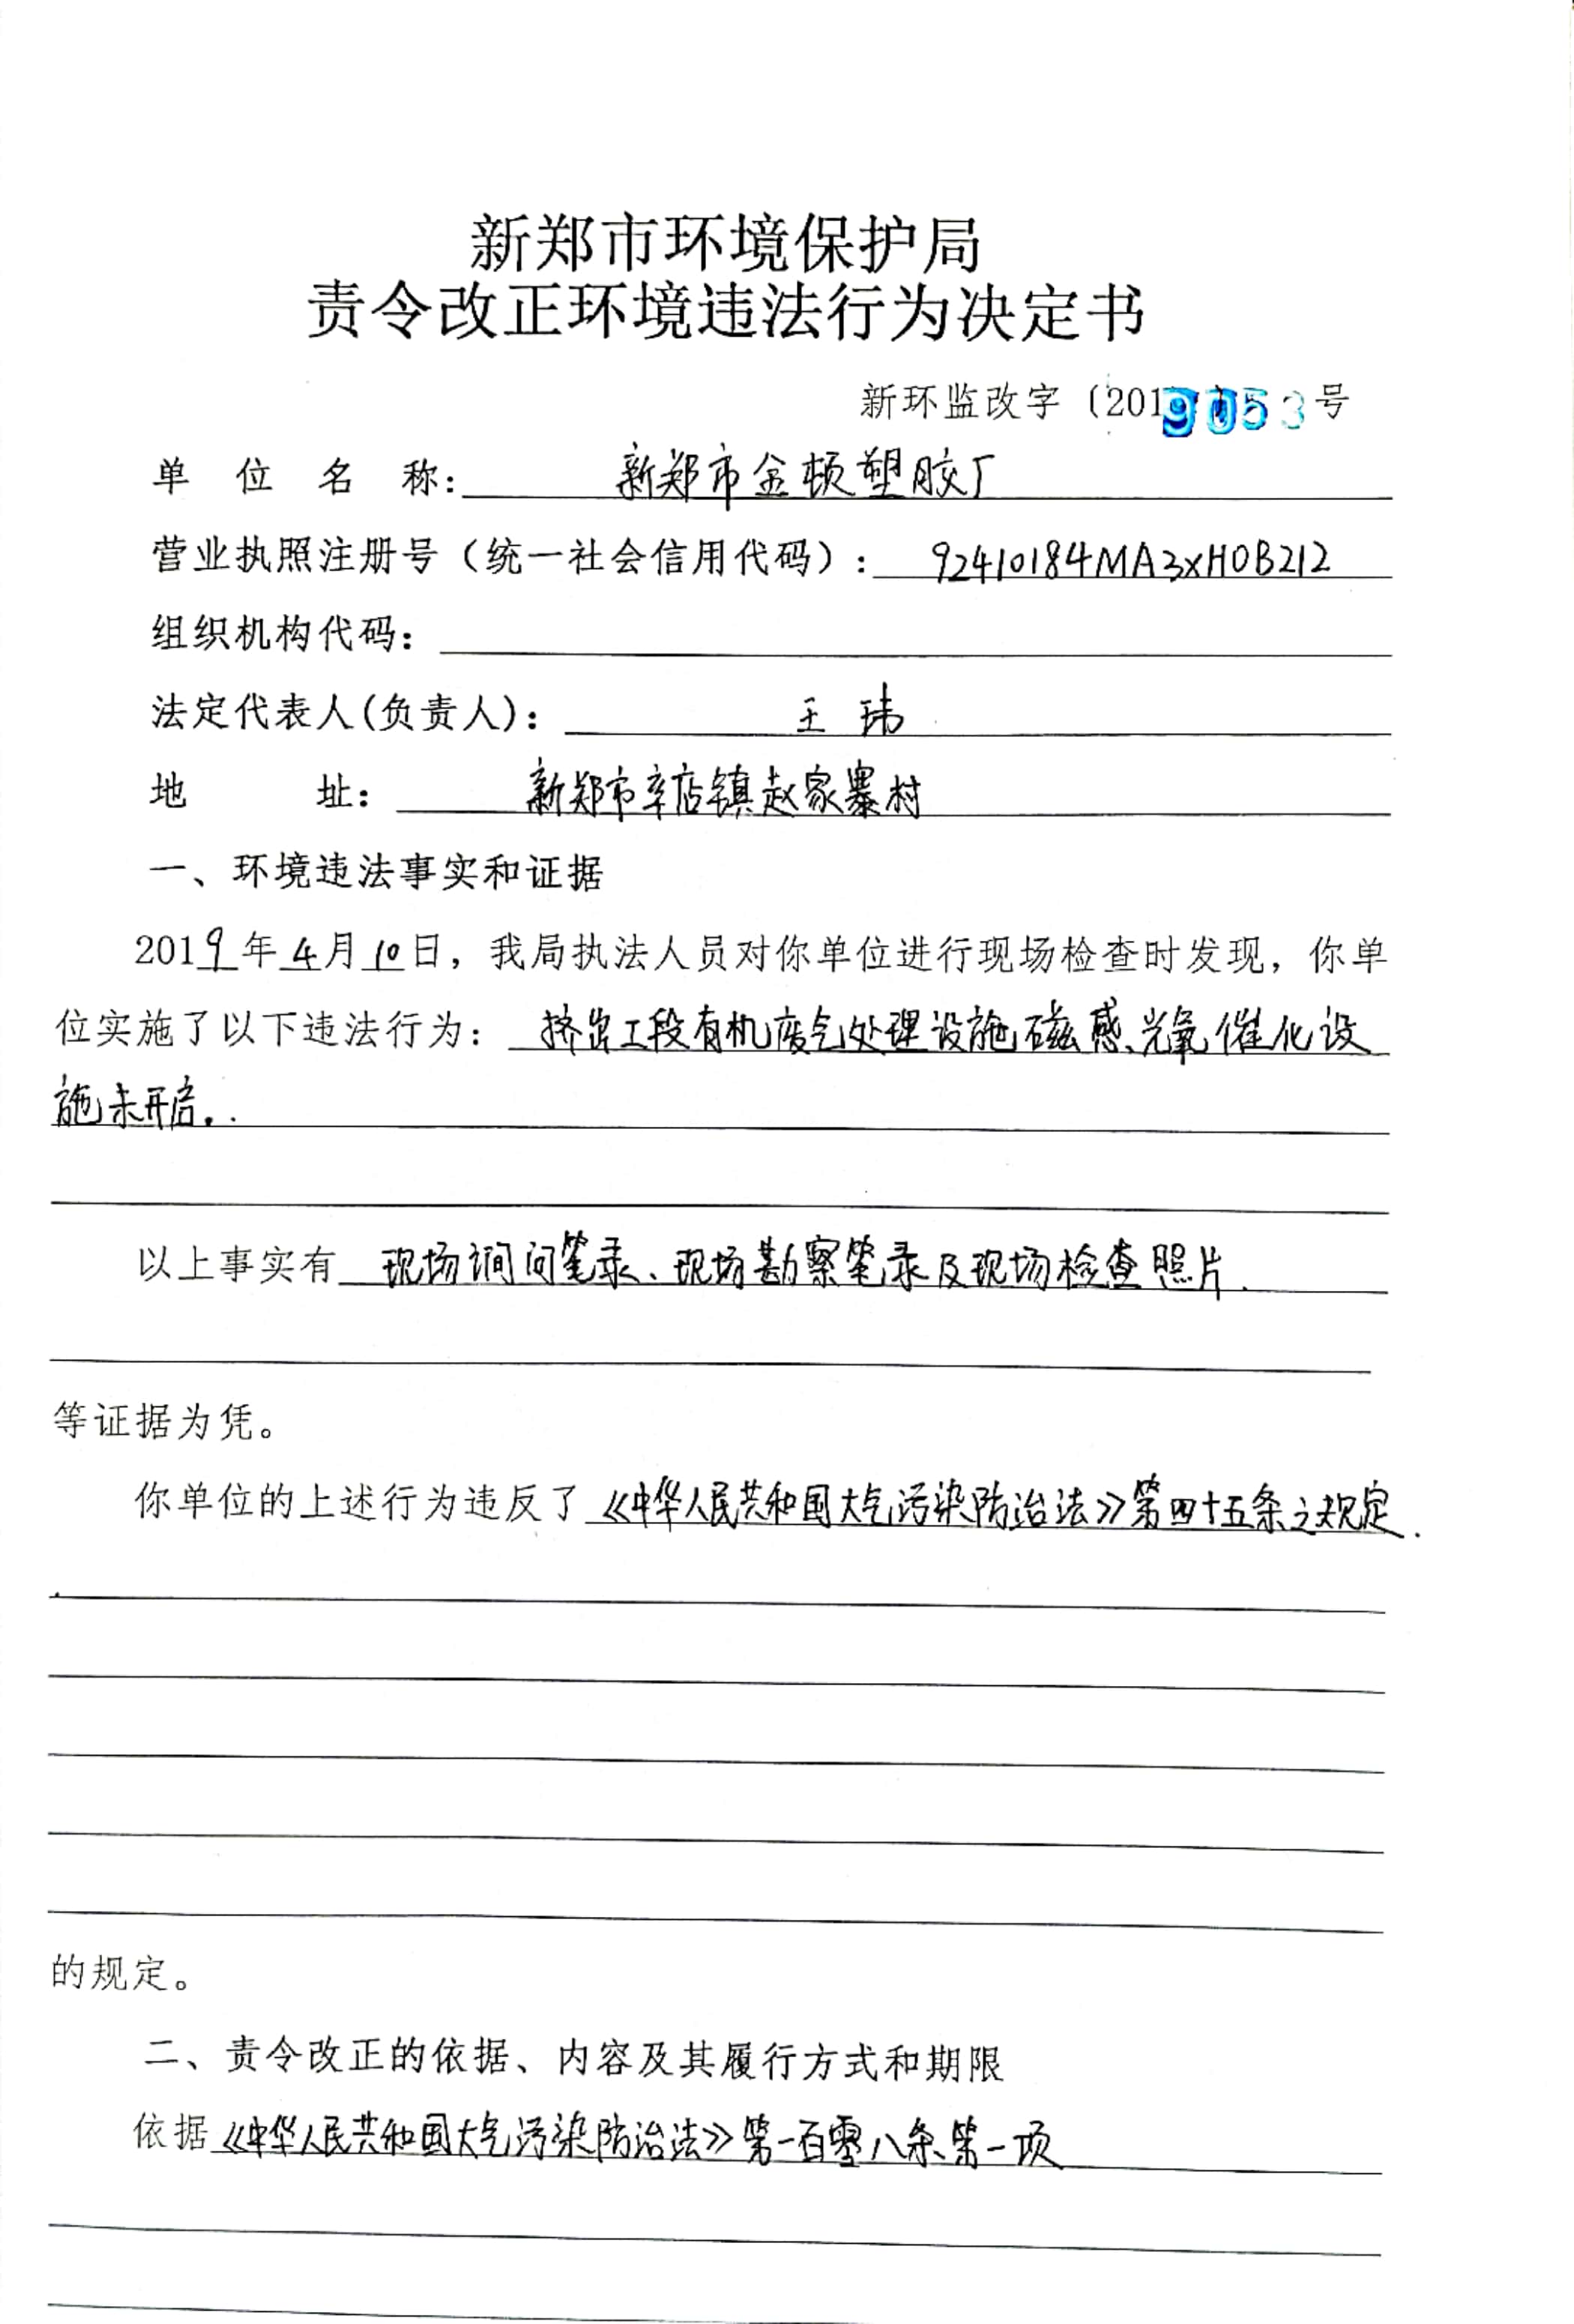 新郑市环境保护局
责令改正环境违法行为决定书
新环监改字〔2019 053号
单位名称：新郑市金顿塑胶厂
营业执照注册号（统一社会信用代码）：92410184MA3XH0B212
组织机构代码：
法定代表人(负责人)：王玮
地址：新郑市辛店镇赵家寨村
一、环境违法事实和证据
2019年4月10日，我局执法人员对你单位进行现场检查时发现，你单
位实施了以下违法行为：挤出工段有机废气处理设施磁感、光氧催化设
施未开启。
以上事实有现场询问笔录、现场勘察笔录及现场检查照片.
等证据为凭。
你单位的上述行为违反了《中华人民共和国大气污染防治法》第四十五条之规定.
的规定。
二、责令改正的依据、内容及其履行方式和期限
依据《中华人民共和国大气污染防治法》第一百零八条第一项